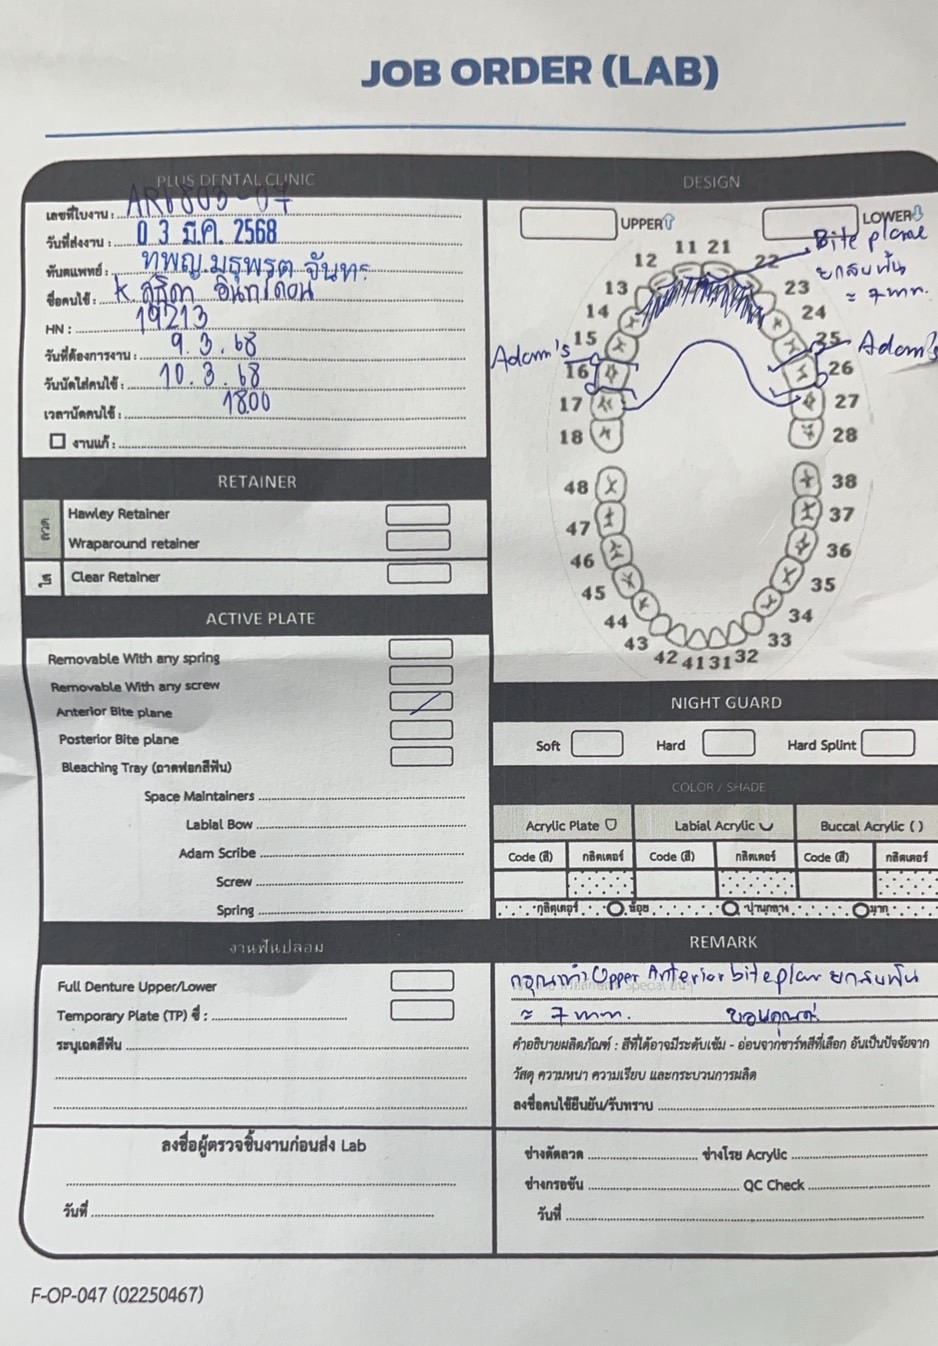 JOB ORDER (LAB)
PLUS DENTAL CLINIC
เลขที่ใบงาน : AR6803-07
วันที่ส่งงาน : 0 3 มี.ค. 2568
ทันตแพทย์ : ทพญ.มธุพรต จันทะ
ชื่อคนไข้ : K. สุธิดา อินทไดอน
HN : 19213
วันที่ต้องการงาน : 9.3.68
วันนัดใส่คนไข้ : 10.3.68
เวลานัดคนไข้ : 18.00
งานแก้ :
RETAINER
ลวด
Hawley Retainer
Wraparound retainer
ใส
Clear Retainer
ACTIVE PLATE
Removable With any spring
Removable With any screw
Anterior Bite plane /
Posterior Bite plane
Bleaching Tray (ถาดฟอกสีฟัน)
Space Maintainers
Labial Bow
Adam Scribe
Screw
Spring
งานฟันปลอม
Full Denture Upper/Lower
Temporary Plate (TP) ซี่ :
ระบุเฉดสีฟัน
ลงชื่อผู้ตรวจชิ้นงานก่อนส่ง Lab
วันที่
DESIGN
UPPER LOWER
Bite plane
ยกสบฟัน
≈ 7 mm.
11 21
12 22
13 23
14 24
15 25
Adam's 16 26 Adam's
17 27
18 28
48 38
47 37
46 36
45 35
44 34
43 33
42 41 31 32
NIGHT GUARD
Soft Hard Hard Splint
COLOR / SHADE
Acrylic Plate Labial Acrylic Buccal Acrylic ( )
Code (สี) กลิตเตอร์ Code (สี) กลิตเตอร์ Code (สี) กลิตเตอร์
กลิตเตอร์ น้อย ปานกลาง มาก
REMARK
กรุณาทำ Upper Anterior bite plan ยกสบฟัน
≈ 7 mm. ขอบคุณค่ะ
คำอธิบายผลิตภัณฑ์ : สีที่ได้อาจมีระดับเข้ม - อ่อนจากชาร์ทสีที่เลือก อันเป็นปัจจัยจาก
วัสดุ ความหนา ความเรียบ และกระบวนการผลิต
ลงชื่อคนไข้ยืนยัน/รับทราบ
ช่างดัดลวด ช่างโรย Acrylic
ช่างกรอขัน QC Check
วันที่
F-OP-047 (02250467)